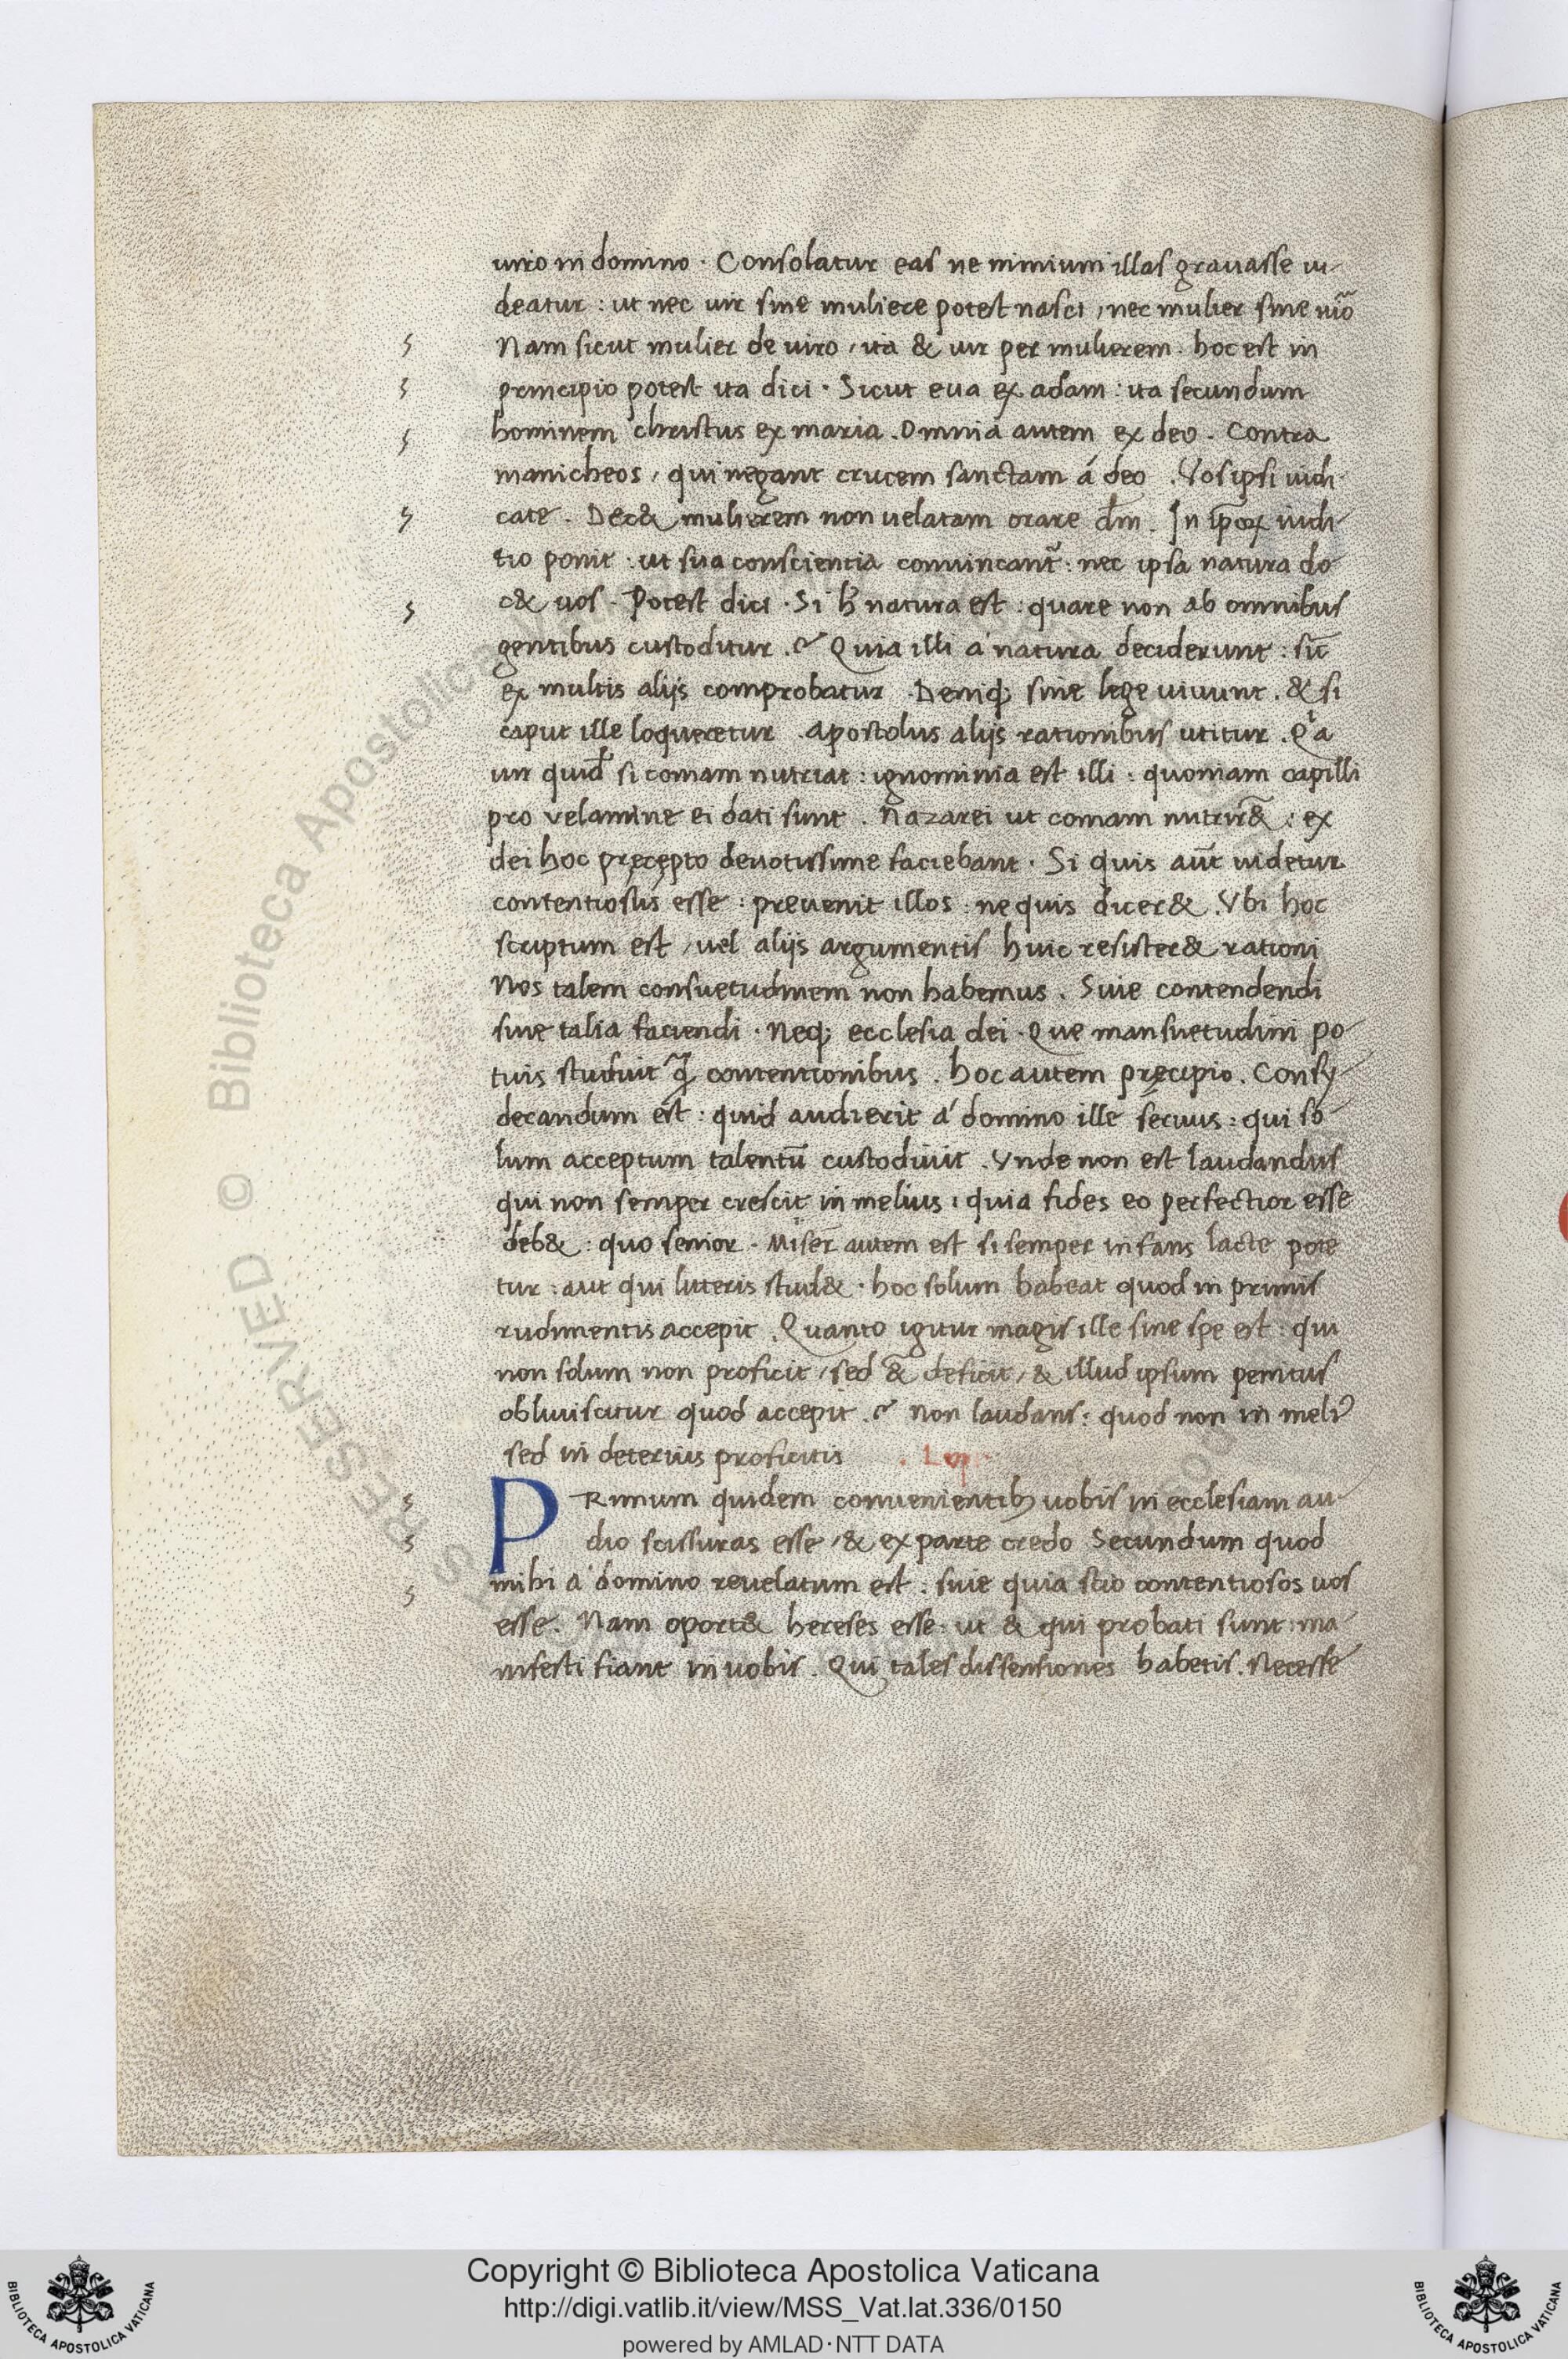 uiro in domino · Consolatur eas ne nimium illas grauasse ui-
deatur : ut nec uir sine muliere potest nasci , nec mulier sine uiro
Nam sicut mulier de uiro , ita & uir per mulierem · hoc est in
principio potest ita dici · Sicut eua ex adam : ita secundum
hominem christus ex maria . Omnia autem ex deo . Contra
manicheos , qui negant crucem sanctam á deo . Vos ipsi iudi-
cate . Dec& mulierem non uelatam orare dm̄ . In ip̄oꝝ iudi-
tio ponit : ut sua conscientia conuincant̃ : nec ipsa natura do-
c& uos . Potest dici . Si h̄ natura est : quare non ab omnibus
gentibus custoditur . Quia illi á natura deciderunt : sic̄
ex multis alijs comprobatur . Deniq; sine lege uiuunt . & si
caput ille loqueretur . apostolus alijs rationibus utitur . Qa
uir quid̄ si comam nutriat : ignominia est illi : quoniam capilli
pro velamine ei dati sunt . Nazarei ut comam nutrir& : ex
dei hoc precepto deuotissime faciebant . Si quis aut̄ uidetur
contentiosus esse : preuenit illos : ne quis dicer& . Vbi hoc
scriptum est , uel alijs argumentis huic resister& rationi
Nos talem consuetudinem non habemus . Siue contendendi
siue talia faciendi . Neq; ecclesia dei . Que mansuetudini po-
tuis studuit q̃ contentionibus . hoc autem precipio . Consy-
derandum est : quid audierit á domino ille seruus : qui so-
lum acceptum talentū custodiuit . Vnde non est laudandus
qui non semper crescit in melius : quia fides eo perfectior esse
deb& : quo senior . Miser autem est si semper infans lacte pote
tur : aut qui litteris stud& . hoc solum habeat quod in primis
rudimentis accepit . Quanto igitur magis ille sine spe est : qui
non solum non proficit , sed &̄ deficit , & illud ipsum penitus
obliuiscitur quod accepit . non laudans : quod non in meli⁹
sed in deterius proficitis
PRimum quidem conuenientib; uobis in ecclesiam au-
dio scissuras esse , & ex parte credo Secundum quod
mihi á domino reuelatum est : siue quia scio contentiosos uos
esse . Nam oport& hereses esse : ut & qui probati sunt : ma-
nifesti fiant in uobis . Qui tales dissensiones habetis . Necesse
RESERVED © Biblioteca Apostolica
Copyright © Biblioteca Apostolica Vaticana
http://digi.vatlib.it/view/MSS_Vat.lat.336/0150
powered by AMLAD·NTT DATA
BIBLIOTECA APOSTOLICA VATICANA
BIBLIOTECA APOSTOLICA VATICANA